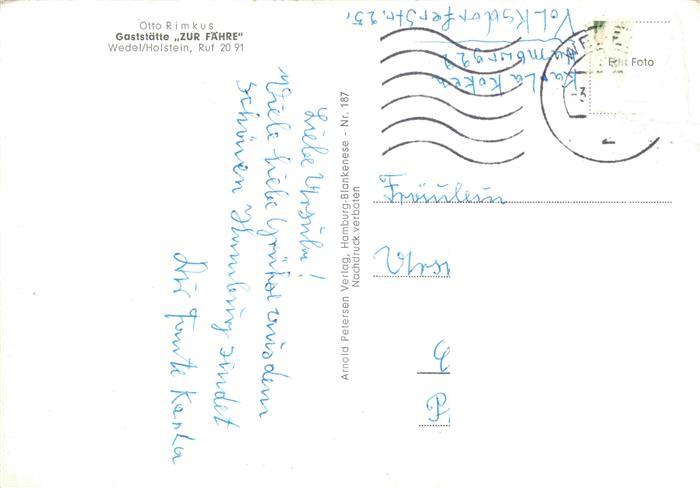 Otto Rimkus
Gaststätte „ZUR FÄHRE"
Wedel/Holstein, Ruf 20 91
Liebe Ursula!
Viele liebe Grüße aus dem
schönen Hamburg sendet
Dir Tante Karla
Arnold Petersen Verlag, Hamburg-Blankenese - Nr. 187
Nachdruck verboten
Karla Koken
Hamburg 29
Volksdorfer Str. 25,
Echt Foto
Fräulein